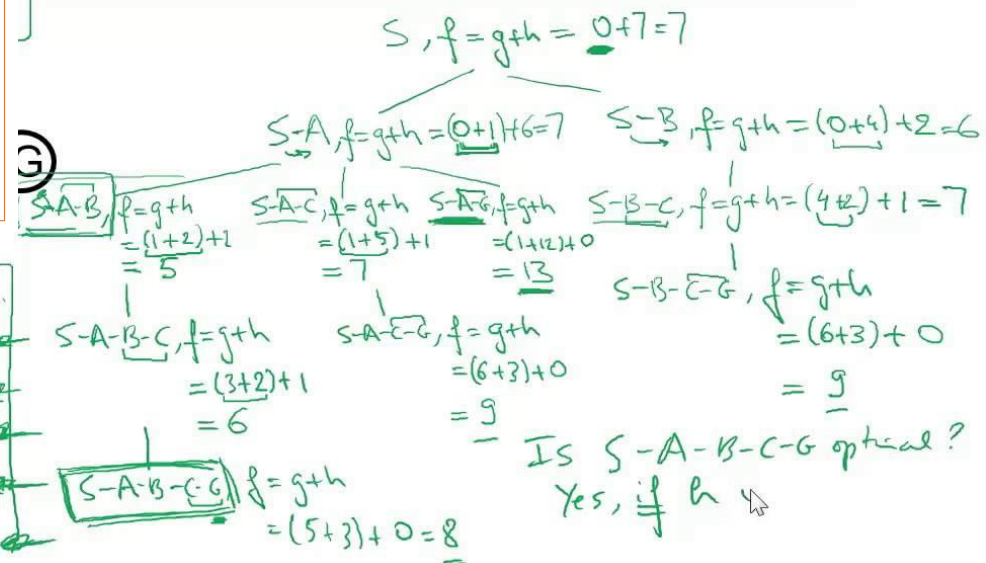 S, f = g+h = 0+7=7
S-A, f=g+h=(0+1)+6=7
S-B, f=g+h=(0+4)+2=6
G
S-A-B, f=g+h
=(1+2)+2
= 5
S-A-C, f=g+h
=(1+5)+1
=7
S-A-G, f=g+h
=(1+12)+0
= 13
S-B-C, f=g+h=(4+2)+1=7
S-B-C-G, f=g+h
=(6+3)+0
= 9
S-A-B-C, f=g+h
=(3+2)+1
=6
S-A-C-G, f=g+h
=(6+3)+0
= 9
S-A-B-C-G f=g+h
=(5+3)+0=8
Is S-A-B-C-G optimal?
Yes, if h